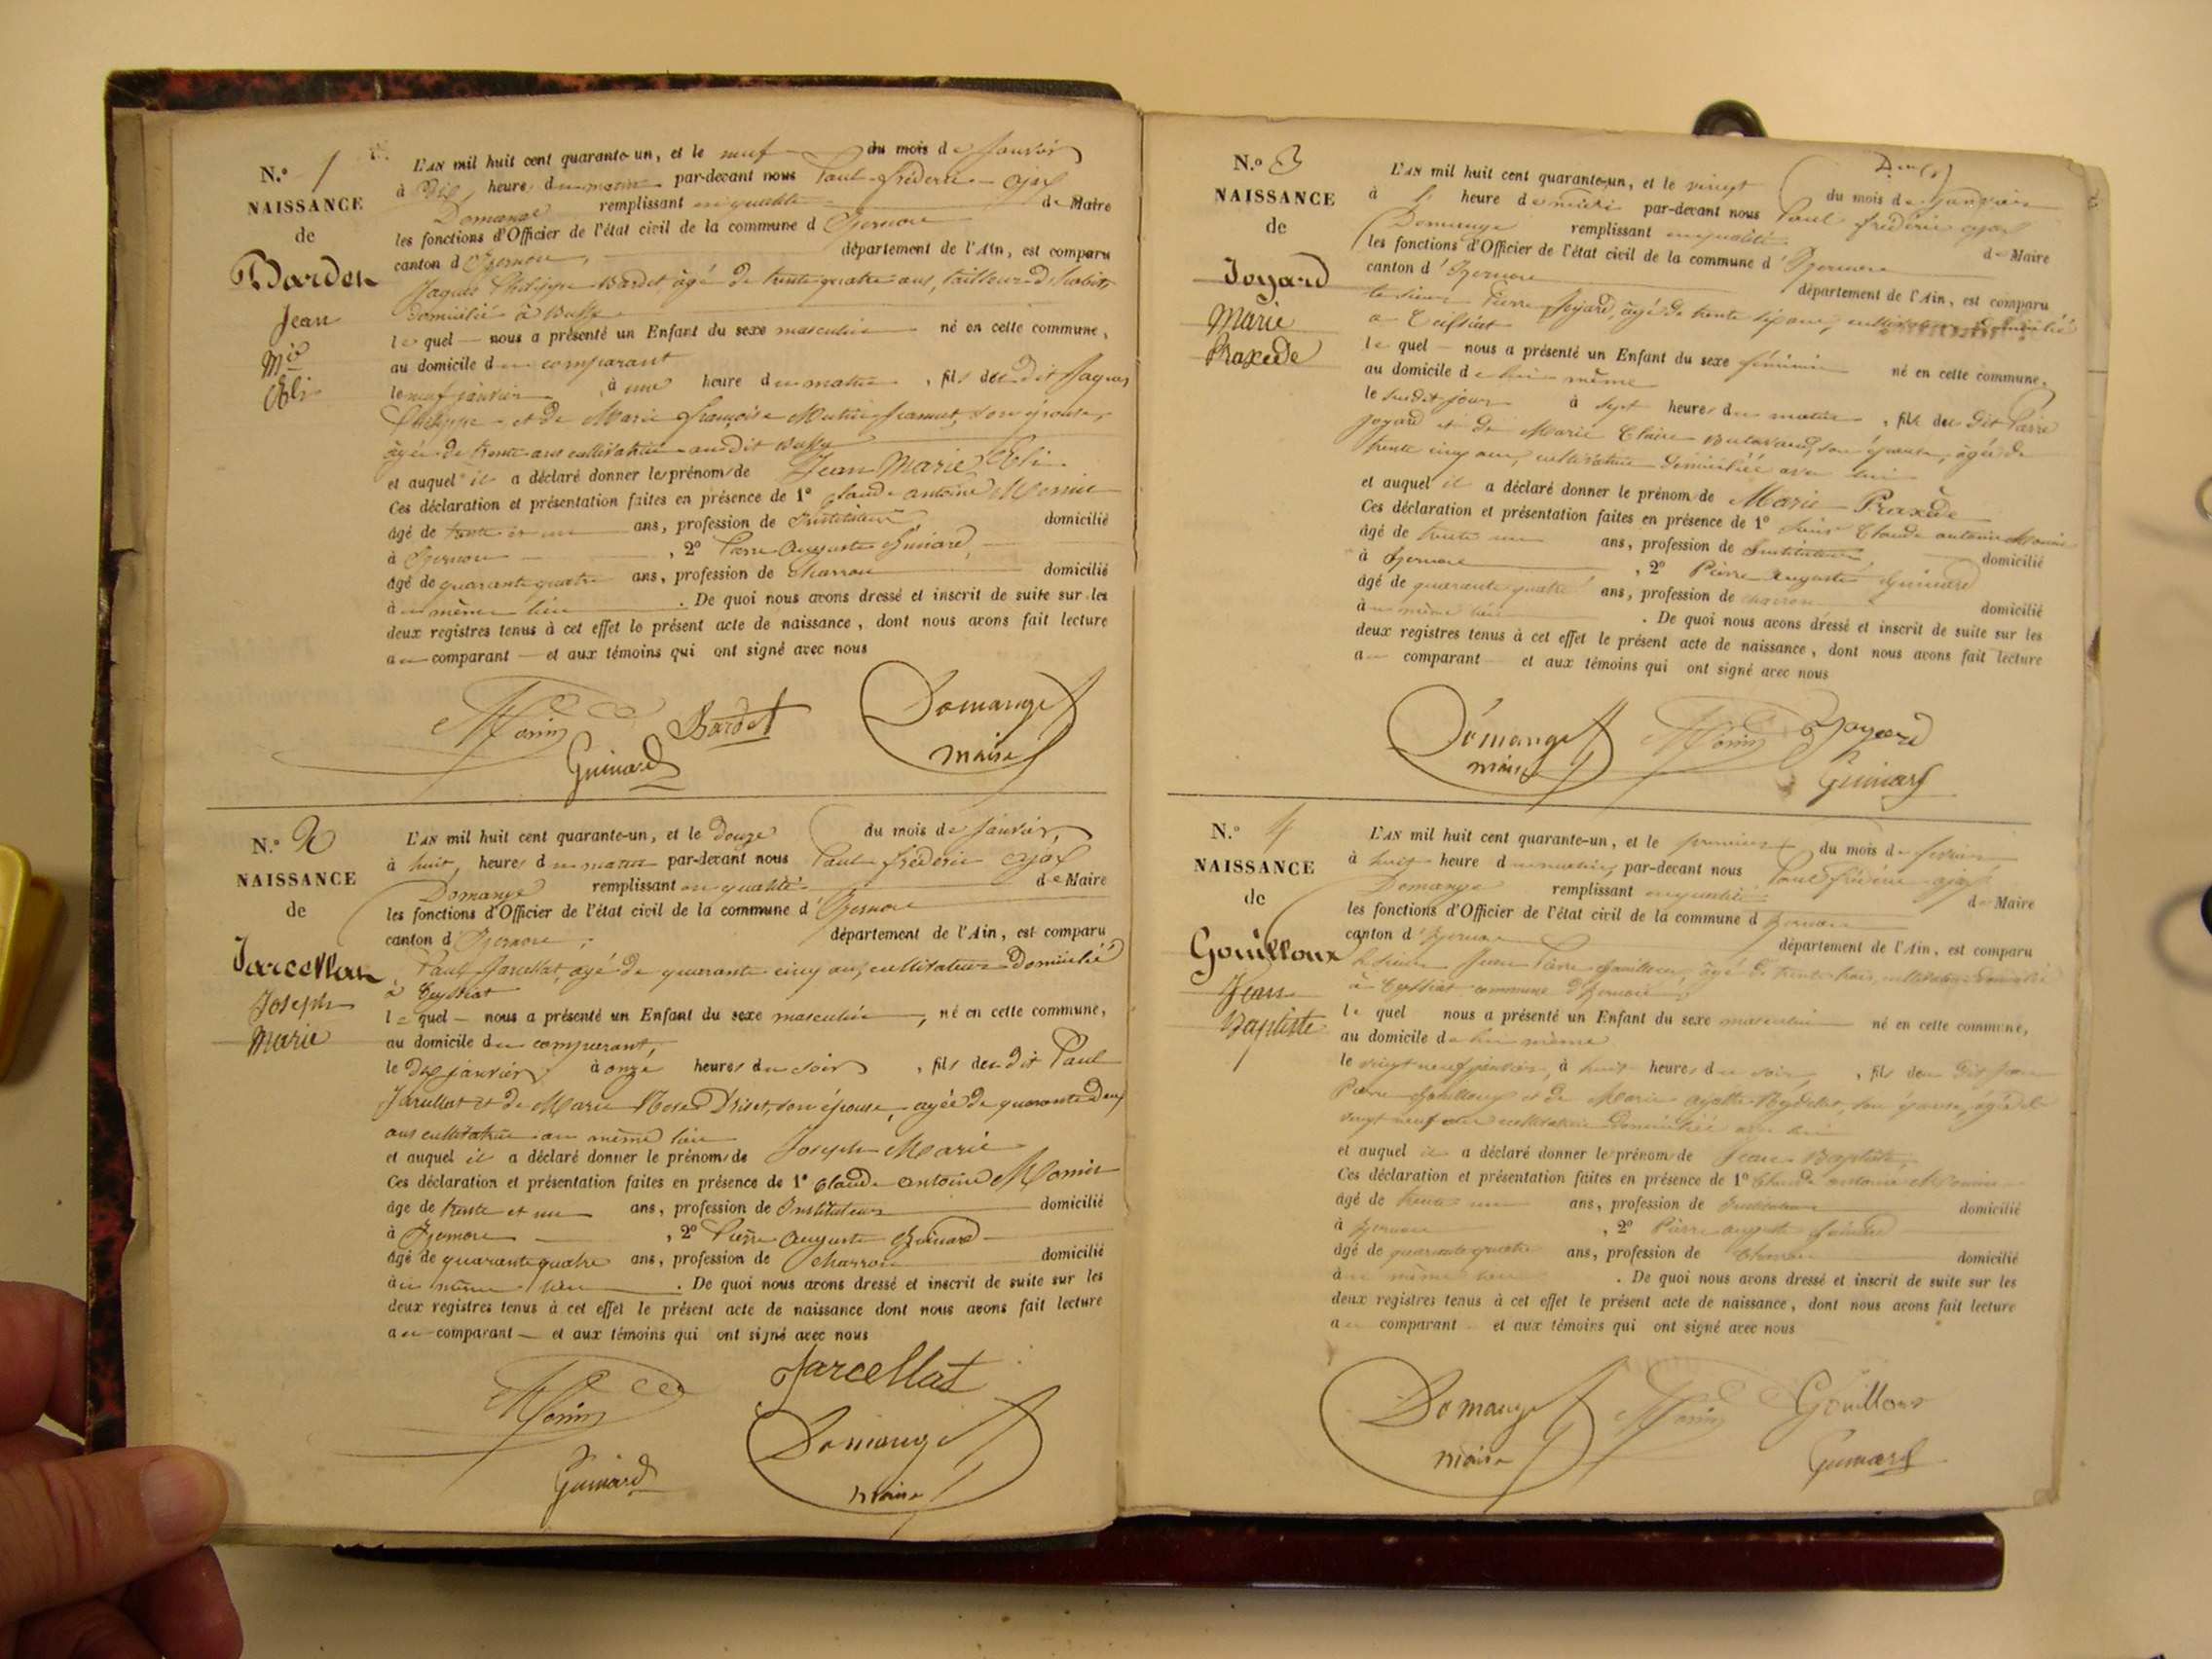 N.° 1
NAISSANCE
de
Barden
Jean
Mie
Eli
L'AN mil huit cent quarante-un, et le neuf du mois de Janvier
à Dix heures du matin par-devant nous Paul frédéric ajax
Domange remplissant en qualité de Maire
les fonctions d'Officier de l'état civil de la commune d'Izernore
canton d'Izernore, département de l'Ain, est comparu
Jaques Philippe Bardet âgé de trente quatre ans, tailleur d'habits
domicilié à
lequel nous a présenté un Enfant du sexe masculin né en cette commune,
au domicile du comparant
le neuf janvier à une heure du matin, fils du dit Jaques
Philippe et de Marie françoise son épouse,
âgée de trente ans cultivatrice audit
et auquel il a déclaré donner les prénoms de Jean Marie Eli
Ces déclaration et présentation faites en présence de 1° Claude antoine
âgé de trente et un ans, profession de Instituteur domicilié
à Izernore, 2° Pierre Auguste Guinard
âgé de quarante quatre ans, profession de Charron domicilié
au même lieu. De quoi nous avons dressé et inscrit de suite sur les
deux registres tenus à cet effet le présent acte de naissance, dont nous avons fait lecture
au comparant et aux témoins qui ont signé avec nous
Bardet Domange
Guinard maire
N.° 2
NAISSANCE
de
Jarcellat
Joseph
Marie
L'AN mil huit cent quarante-un, et le douze du mois de Janvier,
à huit heures du matin par-devant nous Paul frédéric ajax
Domange remplissant en qualité de Maire
les fonctions d'Officier de l'état civil de la commune d'Izernore
canton d'Izernore, département de l'Ain, est comparu
Paul Jarcellat, âgé de quarante cinq ans, cultivateur Domicilié
à Ceyssiat
lequel nous a présenté un Enfant du sexe masculin, né en cette commune,
au domicile du comparant,
le Dix janvier à onze heures du soir, fils du dit Paul
Jarcellat et de Marie Rose son épouse, agée de quarante deux
ans cultivatrice au même lieu
et auquel il a déclaré donner les prénoms de Joseph Marie
Ces déclaration et présentation faites en présence de 1° Claude antoine
âgé de trente et un ans, profession de Instituteur domicilié
à Izernore, 2° Pierre Auguste Guinard
âgé de quarante quatre ans, profession de charron domicilié
au même lieu. De quoi nous avons dressé et inscrit de suite sur les
deux registres tenus à cet effet le présent acte de naissance dont nous avons fait lecture
au comparant et aux témoins qui ont signé avec nous
Jarcellat
Domange
Guinard maire
N.° 3
NAISSANCE
de
Joyard
Marie
Praxede
Deux
L'AN mil huit cent quarante-un, et le vingt du mois de janvier
à heure de midi par-devant nous Paul frédéric ajax
Domange remplissant en qualité de Maire
les fonctions d'Officier de l'état civil de la commune d'Izernore
canton d'Izernore département de l'Ain, est comparu
le sieur Pierre Joyard, âgé de trente six ans, cultivateur domicilié
a Ceissiat
lequel nous a présenté un Enfant du sexe féminin né en cette commune,
au domicile de lui même
le susdit jour à sept heures du matin, fils du dit Pierre
joyard et de Marie Claire son épouse, âgée de
trente cinq ans, cultivatrice domiciliée avec lui
et auquel il a déclaré donner le prénom de Marie Praxède
Ces déclaration et présentation faites en présence de 1° Claude antoine
âgé de trente un ans, profession de Instituteur domicilié
à Izernore, 2° Pierre Auguste Guinard
âgé de quarante quatre ans, profession de charron domicilié
au même lieu. De quoi nous avons dressé et inscrit de suite sur les
deux registres tenus à cet effet le présent acte de naissance, dont nous avons fait lecture
au comparant et aux témoins qui ont signé avec nous
Domange Joyard
maire Guinard
N.° 4
NAISSANCE
de
Gouilloux
Jean
Baptiste
L'AN mil huit cent quarante-un, et le premier du mois de février
à huit heure du matin, par-devant nous Paul frédéric ajax
Domange remplissant en qualité de Maire
les fonctions d'Officier de l'état civil de la commune d'Izernore
canton d'Izernore département de l'Ain, est comparu
le sieur Jean Pierre Gouilloux, âgé de trente trois, cultivateur domicilié
à Ceyssiat commune d'Izernore
lequel nous a présenté un Enfant du sexe masculin né en cette commune,
au domicile de lui même
le vingt neuf janvier, à huit heures du soir, fils du dit Jean
Pierre Gouilloux et de Marie son épouse, âgée de
vingt neuf ans cultivatrice domiciliée avec lui
et auquel il a déclaré donner le prénom de Jean Baptiste,
Ces déclaration et présentation faites en présence de 1° Claude antoine
âgé de trente un ans, profession de Instituteur domicilié
à Izernore, 2° Pierre auguste Guinard
âgé de quarante quatre ans, profession de Charron domicilié
au même lieu. De quoi nous avons dressé et inscrit de suite sur les
deux registres tenus à cet effet le présent acte de naissance, dont nous avons fait lecture
au comparant et aux témoins qui ont signé avec nous
Domange Gouilloux
maire Guinard